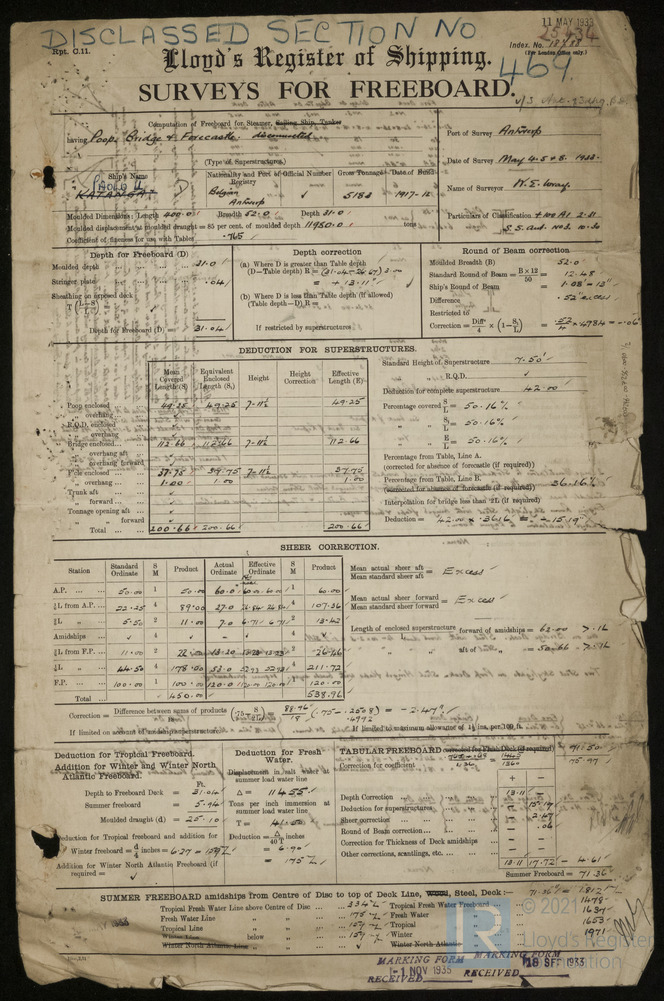 DISCLASSED SECTION NO
11 MAY 1933
25434
Rpt. C.11.
Index. No.
(For London Office only.)
469
Lloyd's Register of Shipping.
SURVEYS FOR FREEBOARD.
Computation of Freeboard for Steamer, Sailing Ship, Tanker
having Poop, Bridge & Forecastle disconnected
(Type of Superstructures.)
Port of Survey Antwerp
Date of Survey May 4.5 & 8. 1933.
Name of Surveyor
Particulars of Classification +100 A1 2.31
S.S. Ant. No3. 10.30
Ship's Name
KATANGA
Nationality and Port of Registry
Belgian
Antwerp
Official Number
Gross Tonnage
5183
Date of Build
1917-12
Moulded Dimensions: Length 400.0 Breadth 52.0 Depth 31.0
Moulded displacement at moulded draught = 85 per cent. of moulded depth 11950.0 tons
Coefficient of fineness for use with Tables .765
Depth for Freeboard (D)
Moulded depth 31.0
Stringer plate .04
Sheathing on exposed deck
T (L-S/L) =
Depth for Freeboard (D) = 31.04
Depth correction
(a) Where D is greater than Table depth
(D-Table depth) R = (31.04-26.67) 3.00
= + 13.11"
(b) Where D is less than Table depth (if allowed)
(Table depth-D) R =
If restricted by superstructures
Round of Beam correction
Moulded Breadth (B) 52.0
Standard Round of Beam = B×12/50 = 12.48
Ship's Round of Beam = 1.08 - 13"
Difference .52 excess
Restricted to
Correction = Diff/4 × (1-S/L) = .52/4 × .4984 = -.06
DEDUCTION FOR SUPERSTRUCTURES.
Mean Covered Length (S) Equivalent Enclosed Length (S₁) Height Height Correction Effective Length (E)
Poop enclosed 49.25 49.25 7-11½ 49.25
overhang
R.Q.D. enclosed
overhang
Bridge enclosed 112.66 112.66 7-11½ 112.66
overhang aft
overhang forward
F'cle enclosed 37.75 37.75 7-11½ 37.75
overhang 1.00 1.00 1.00
Trunk aft
forward
Tonnage opening aft
forward
Total 200.66 200.66 200.66
Standard Height of Superstructure 7.50'
R.Q.D.
Deduction for complete superstructure 42.00
Percentage covered S/L = 50.16%
S₁/L = 50.16%
E/L = 50.16%
Percentage from Table, Line A.
(corrected for absence of forecastle (if required))
Percentage from Table, Line B. 36.16%
(corrected for absence of forecastle (if required))
Interpolation for bridge less than ·2L (if required)
Deduction = 42.00 × 36.16 = -15.19"
SHEER CORRECTION.
Station Standard Ordinate S M Product Actual Ordinate Effective Ordinate S M Product
A.P. 50.00 1 50.00 60.0 60.0 1 60.00
¼L from A.P. 22.25 4 89.00 27.0 26.84 4 107.36
¼L 5.50 2 11.00 7.0 6.71 2 13.42
Amidships 4 4
¼L from F.P. 11.00 2 22 13.20 2 26.46
¼L 44.50 4 178.00 53.0 52.93 4 211.72
F.P. 100.00 1 100.00 120.0 120.00 1 120.00
Total 450.00 538.96
Mean actual sheer aft
Mean standard sheer aft = Excess
Mean actual sheer forward
Mean standard sheer forward = Excess
Length of enclosed superstructure forward of amidships = 62.00 > .1L
aft of = 50.66 > .1L
Correction = Difference between sums of products/18 (·75-S/2L) = 88.96/18 (.75-.2508) = -2.47"
.4992
If limited on account of midship superstructure.
If limited to maximum allowance of 1½ ins. per 100 ft.
Deduction for Tropical Freeboard.
Addition for Winter and Winter North Atlantic Freeboard.
Ft.
Depth to Freeboard Deck = 31.04
Summer freeboard = 5.94
Moulded draught (d) = 25.10
Deduction for Tropical freeboard and addition for
Winter freeboard = d/4 inches = 6.27 = 159
Addition for Winter North Atlantic Freeboard (if required) =
Deduction for Fresh Water.
Displacement in salt water at summer load water line
Δ = 11455
Tons per inch immersion at summer load water line
T = 41.50
Deduction = Δ/40T inches
= 6.90"
= 175
TABULAR FREEBOARD corrected for Flush Deck (if required) 71.50
Correction for coefficient 75.97
1.36
+ -
Depth Correction 13.11
Deduction for superstructures 15.19
Sheer correction 2.47
Round of Beam correction .06
Correction for Thickness of Deck amidships
Other corrections, scantlings, etc.
13.11 17.72 -4.61
Summer Freeboard = 71.36
SUMMER FREEBOARD amidships from Centre of Disc to top of Deck Line, Wood, Steel, Deck:- 71.36" = 1812
Tropical Fresh Water Line above Centre of Disc 334 Tropical Fresh Water Freeboard 1478
Fresh Water Line 175 Fresh Water 1637
Tropical Line 159 Tropical 1653
Winter Line below 159 Winter 1971
Winter North Atlantic Line Winter North Atlantic
© 2021
Lloyd's Register
Foundation
MARKING FORM
1-1 NOV 1935
RECEIVED
MARKING FORM
18 SEP 1933
RECEIVED